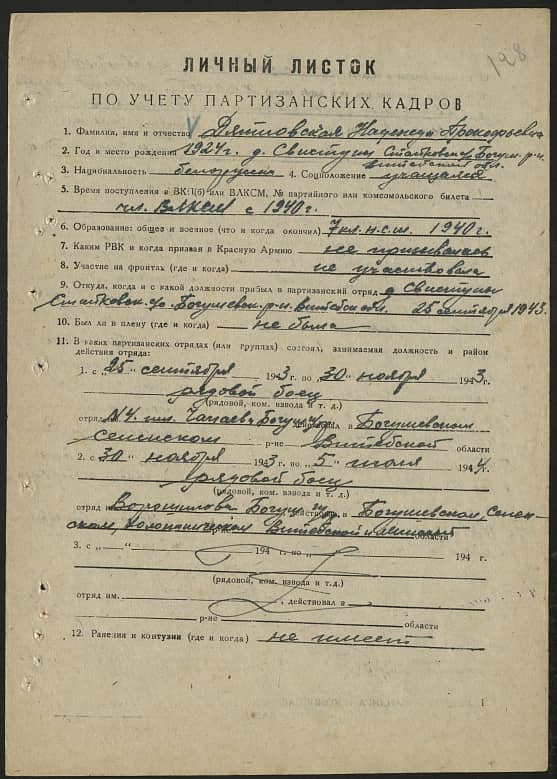 128
ЛИЧНЫЙ ЛИСТОК
ПО УЧЕТУ ПАРТИЗАНСКИХ КАДРОВ
1. Фамилия, имя и отчество Дятловская Надежда Прокофьевна
2. Год и место рождения 1924 г. д. Свистуны Стайковск с/с Богуш. р-н
Витебской обл.
3. Национальность белорусска 4. Соцположение учащаяся
5. Время поступления в ВКП(б) или ВЛКСМ, № партийного или комсомольского билета
чл. ВЛКСМ с 1940 г.
6. Образование: общее и военное (что и когда окончил) 7 кл. н.с.ш. 1940 г.
7. Каким РВК и когда призван в Красную Армию не призывалась
8. Участие на фронтах (где и когда) не участвовала
9. Откуда, когда и с какой должности прибыл в партизанский отряд д. Свистуны
Стайковск. с/с. Богушевск. р-н. Витебск. обл. 25 сентября 1943.
10. Был ли в плену (где и когда) не была
11. В каких партизанских отрядах (или группах) состоял, занимаемая должность и район
действия отряда:
1. с „25" сентября 1943 г. по „30" ноября 1943 г.
рядовой боец
(рядовой, ком. взвода и т. д.)
отряд №4. им. Чапаева Богуш. действовал в Богушевском
Сененском р-не Витебской области
2. с „30" ноября 1943 г. по „5" июля 1944 г.
рядовой боец
(рядовой, ком. взвода и т. д.)
отряд Ворошилова Богуш. действовал в Богушевском, Сенен-
ском, Холопеническом Витебской и Минской области
3. с „ " 194 г. по „ " 194 г.
(рядовой, ком. взвода и т.д.)
отряд им. , действовал в
р-не области
12. Ранения и контузии (где и когда) не имеет